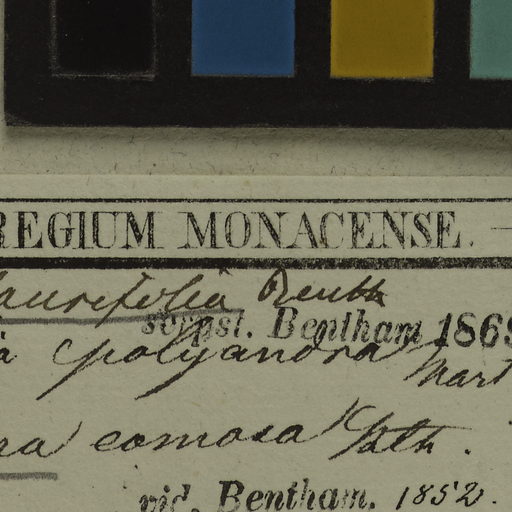 REGIUM MONACENSE.
laurifolia Benth
scripst. Bentham 1869
a polyandra Mart
ra comosa
vid. Bentham. 1852.